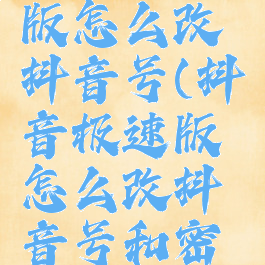 版怎么改
抖音号(抖
音极速版
怎么改抖
音号和密